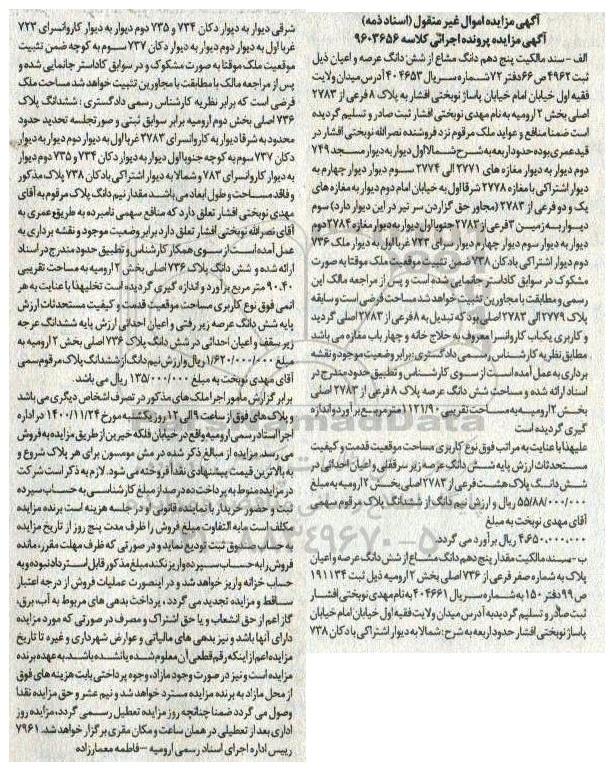 آگهی مزایده اموال غیر منقول (اسناد ذمه)
آگهی مزایده پرونده اجرائی کلاسه ۹۶۰۳۶۵۶
الف - سند مالکیت پنج دهم دانگ مشاع از شش دانگ عرصه و اعیان ذیل
ثبت ۴۹۶۲ ص ۶۶ دفتر ۷۲ شماره سریال ۴۰۴۶۵۳ آدرس میدان ولایت
فقیه اول خیابان امام خیابان پاساژ نوبختی افشار به پلاک ۸ فرعی از ۲۷۸۳
اصلی بخش ۲ ارومیه به نام مهدی نوبختی افشار ثبت صادر و تسلیم گردیده
است ضمنا منافع و عواید ملک مرقوم نزد فروشنده نصرالله نوبختی افشار در
قید عمری بوده حدود اربعه به شرح شمالا اول دیوار به دیوار مسجد ۷۴۹
دوم دیوار به دیوار مغازه های ۲۷۷۱ الی ۲۷۷۴ سوم دیوار دیوار چهارم به
دیوار اشتراکی با مغازه ۲۷۷۸ شرقا اول به خیابان امام دوم دیوار به مغازه های
یک و دو فرعی از ۲۷۸۳ (مجاور حق گزاردن سر تیر در این دیوار دارد) سوم
دیوار به زمین ۳ فرعی از ۲۷۸۳ جنوبا اول دیوار به دیوار مغازه ۲۷۸۴ دوم
دیوار به دیوار سوم دیوار چهارم دیوار سرای ۷۲۳ غربا اول به دیوار ملک ۷۳۶
دوم دیوار اشتراکی با دکان ۷۳۸ ضمن تثبیت موقعیت ملک موقتا به صورت
مشکوک در سوابق کاداستر جانمایی شده است و پس از مراجعه مالک این
رسمی و مطابقت با مجاورین تثبیت خواهد شد مساحت فرضی است و سابقه
پلاک ۲۷۷۹ الی ۲۷۸۳ اصلی بود که تبدیل به ۸ فرعی از ۲۷۸۳ اصلی گردید
و کاربری یکباب کاروانسرا معروف به حلاج خانه و چهار باب مغازه می باشد
مطابق نظریه کارشناس رسمی دادگستری: برابر وضعیت موجود و نقشه
برداری به عمل آمده است از سوی کارشناس و تطبیق حدود مندرج در
اسناد ارائه شده و مساحت شش دانگ عرصه پلاک ۸ فرعی از ۲۷۸۳ اصلی
بخش ۲ ارومیه به مساحت تقریبی ۱۱۲۱/۹۰ متر مربع برآورد و اندازه
گیری گردیده است
علیهذا با عنایت به مراتب فوق نوع کاربری مساحت موقعیت قدمت و کیفیت
مستحدثات ارزش پایه شش دانگ عرصه زیر سرقفلی و اعیان احداثی در
شش دانگ پلاک هشت فرعی از ۲۷۸۳ اصلی بخش ۲ ارومیه به مبلغ
ریال و ارزش نیم دانگ از ششدانگ پلاک مرقوم سهمی
آقای مهدی نوبخت به مبلغ
۴،۶۵۰،۰۰۰،۰۰۰ ریال برآورد می گردد.
ب - سند مالکیت مقدار پنج دهم دانگ مشاع از شش دانگ عرصه و اعیان
پلاک به شماره صفر فرعی از ۷۳۶ اصلی بخش ۲ ارومیه ذیل ثبت ۱۹۱۱۳۴
ص ۹۹ دفتر ۱۵۰ به شماره سریال ۴۰۴۶۶۱ به نام مهدی نوبختی افشار
ثبت صادر و تسلیم گردید به آدرس میدان ولایت فقیه اول خیابان امام خیابان
پاساژ نوبختی افشار حدود اربعه به شرح: شمالا به دیوار اشتراکی با دکان ۷۳۸
شرقی دیوار به دیوار دکان ۷۳۴ و ۷۳۵ دوم دیوار به دیوار کاروانسرای ۷۲۳
غربا اول به دیوار دوم دیوار به دیوار دکان ۷۳۷ سوم به کوچه ضمن تثبیت
موقعیت ملک موقتا به صورت مشکوک و در سوابق کاداستر جانمایی شده و
پس از مراجعه مالک با مطابقت با مجاورین تثبیت خواهد شد مساحت ملک
فرضی است که برابر نظریه کارشناس رسمی دادگستری : ششدانگ پلاک
۷۳۶ اصلی بخش دوم ارومیه برابر سوابق ثبتی و صورتجلسه تحدید حدود
محدود به شرقا دیوار به کاروانسرای ۳۷۸۳ غربا اول به دیوار دوم دیوار به دیوار
دکان ۷۳۷ سوم به کوچه جنوبا اول دیوار به دیوار دکان ۷۳۴ و ۷۳۵ دوم دیوار
به دیوار کاروانسرای ۷۸۳ و شمالا به دیوار اشتراکی با دکان ۷۳۸ پلاک مذکور
و فاقد مساحت و طول ابعاد می باشد مقدار نیم دانگ پلاک مرقوم به آقای
مهدی نوبختی افشار تعلق دارد که منافع سهمی نامبرده به طریق عمری به
آقای نصرالله نوبختی افشار تعلق دارد برابر وضعیت موجود و نقشه برداری به
عمل آمده است از سوی همکار کارشناس و تطبیق حدود مندرج در اسناد
ارائه شده و شش دانگ پلاک ۷۳۶ اصلی بخش ۲ ارومیه به مساحت تقریبی
۹۰،۴۰ متر مربع برآورد و اندازه گیری گردیده است لذا علیهذا با عنایت به هر
اتمی فوق نوع کاربری مساحت موقعیت قدمت و کیفیت مستحدثات ارزش
پایه شش دانگ عرصه زیر رفتی و اعیان احداثی ارزش پایه ششدانگ عرصه
زیر سقف و اعیان احداثی در شش دانگ پلاک ۷۳۶ اصلی بخش ۲ ارومیه به
مبلغ ۱/۶۲۰/۰۰۰/۰۰۰ ریال و ارزش نیم دانگ از ششدانگ پلاک مرقوم سهمی
آقای مهدی نوبخت به مبلغ ۱۳۵/۰۰۰/۰۰۰ ریال می باشد.
برابر گزارش مامور اجرا ملک های مذکور در تصرف اشخاص دیگری می باشد
و پلاک های فوق از ساعت ۹ الی ۱۲ روز یکشنبه مورخ ۱۴۰۰/۱۱/۲۴ در اداره
اجرا اسناد رسمی ارومیه واقع در خیابان فلکه خیرین از طریق مزایده به فروش
می رسد. مزایده از مبالغ ذکر شده در مش مومسون برای هر پلاک شروع و
به بالاترین قیمت پیشنهادی نقدا فروخته می شود. لازم به ذکر است شرکت
در مزایده منوط به پرداخت ده درصد از مبلغ کارشناسی به حساب سپرده
ثبت و حضور خریدار یا نماینده قانونی او در جلسه هزینه است برنده مزایده
مکلف است مابه التفاوت مبلغ فروش را ظرف مدت پنج روز از تاریخ مزایده
به حساب صندوق ثبت تودیع نماید و در صورتی که ظرف مهلت مقرر، مانده
فروش را به حساب سپرده واریز نکند مبلغ مذکور قابل استرداد نبوده و به
حساب خزانه واریز خواهد شد و در اینصورت عملیات فروش از درجه اعتبار
ساقط و مزایده تجدید می گردد ، پرداخت بدهی های مربوط به آب، برق،
گاز اعم از حق انشعاب و یا حق اشتراک و مصرف در صورتی که مورد مزایده
دارای آنها باشد و نیز بدهی های مالیاتی و عوارض شهرداری و غیره تا تاریخ
مزایده اعم از اینکه رقم قطعی آن معلوم شده یا نشده باشد، به عهده برنده
مزایده است و نیز در صورت وجود مازاد، وجوه پرداختی بابت هزینه های فوق
از محل مازاد به برنده مزایده مسترد خواهد شد و نیم عشر و حق مزایده نقدا
وصول می گردد ضمنا چنانچه روز مزایده تعطیل رسمی گردد، مزایده روز
اداری بعد از تعطیلی در همان ساعت و مکان مقرر برگزار خواهد شد. ۷۹۶۱
رییس اداره اجرای اسناد رسمی ارومیه - فاطمه معمارزاده